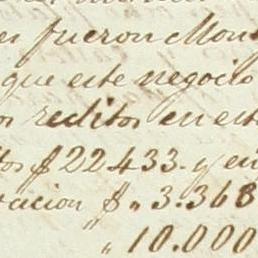 fueron Mon
que este negocio
reditos en est
tos $ 22 433. y en
tacion $ " 3.368
" 10.000